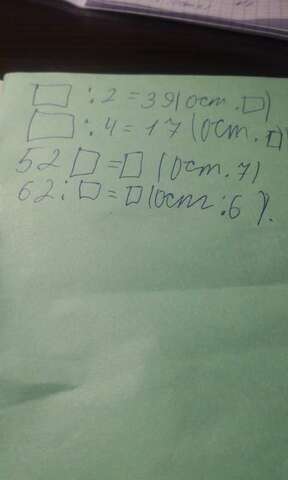 □ : 2 = 39 (ост. □)
□ : 4 = 17 (ост. □)
52 □ = □ (ост. 7)
62 : □ = □ (ост : 6).